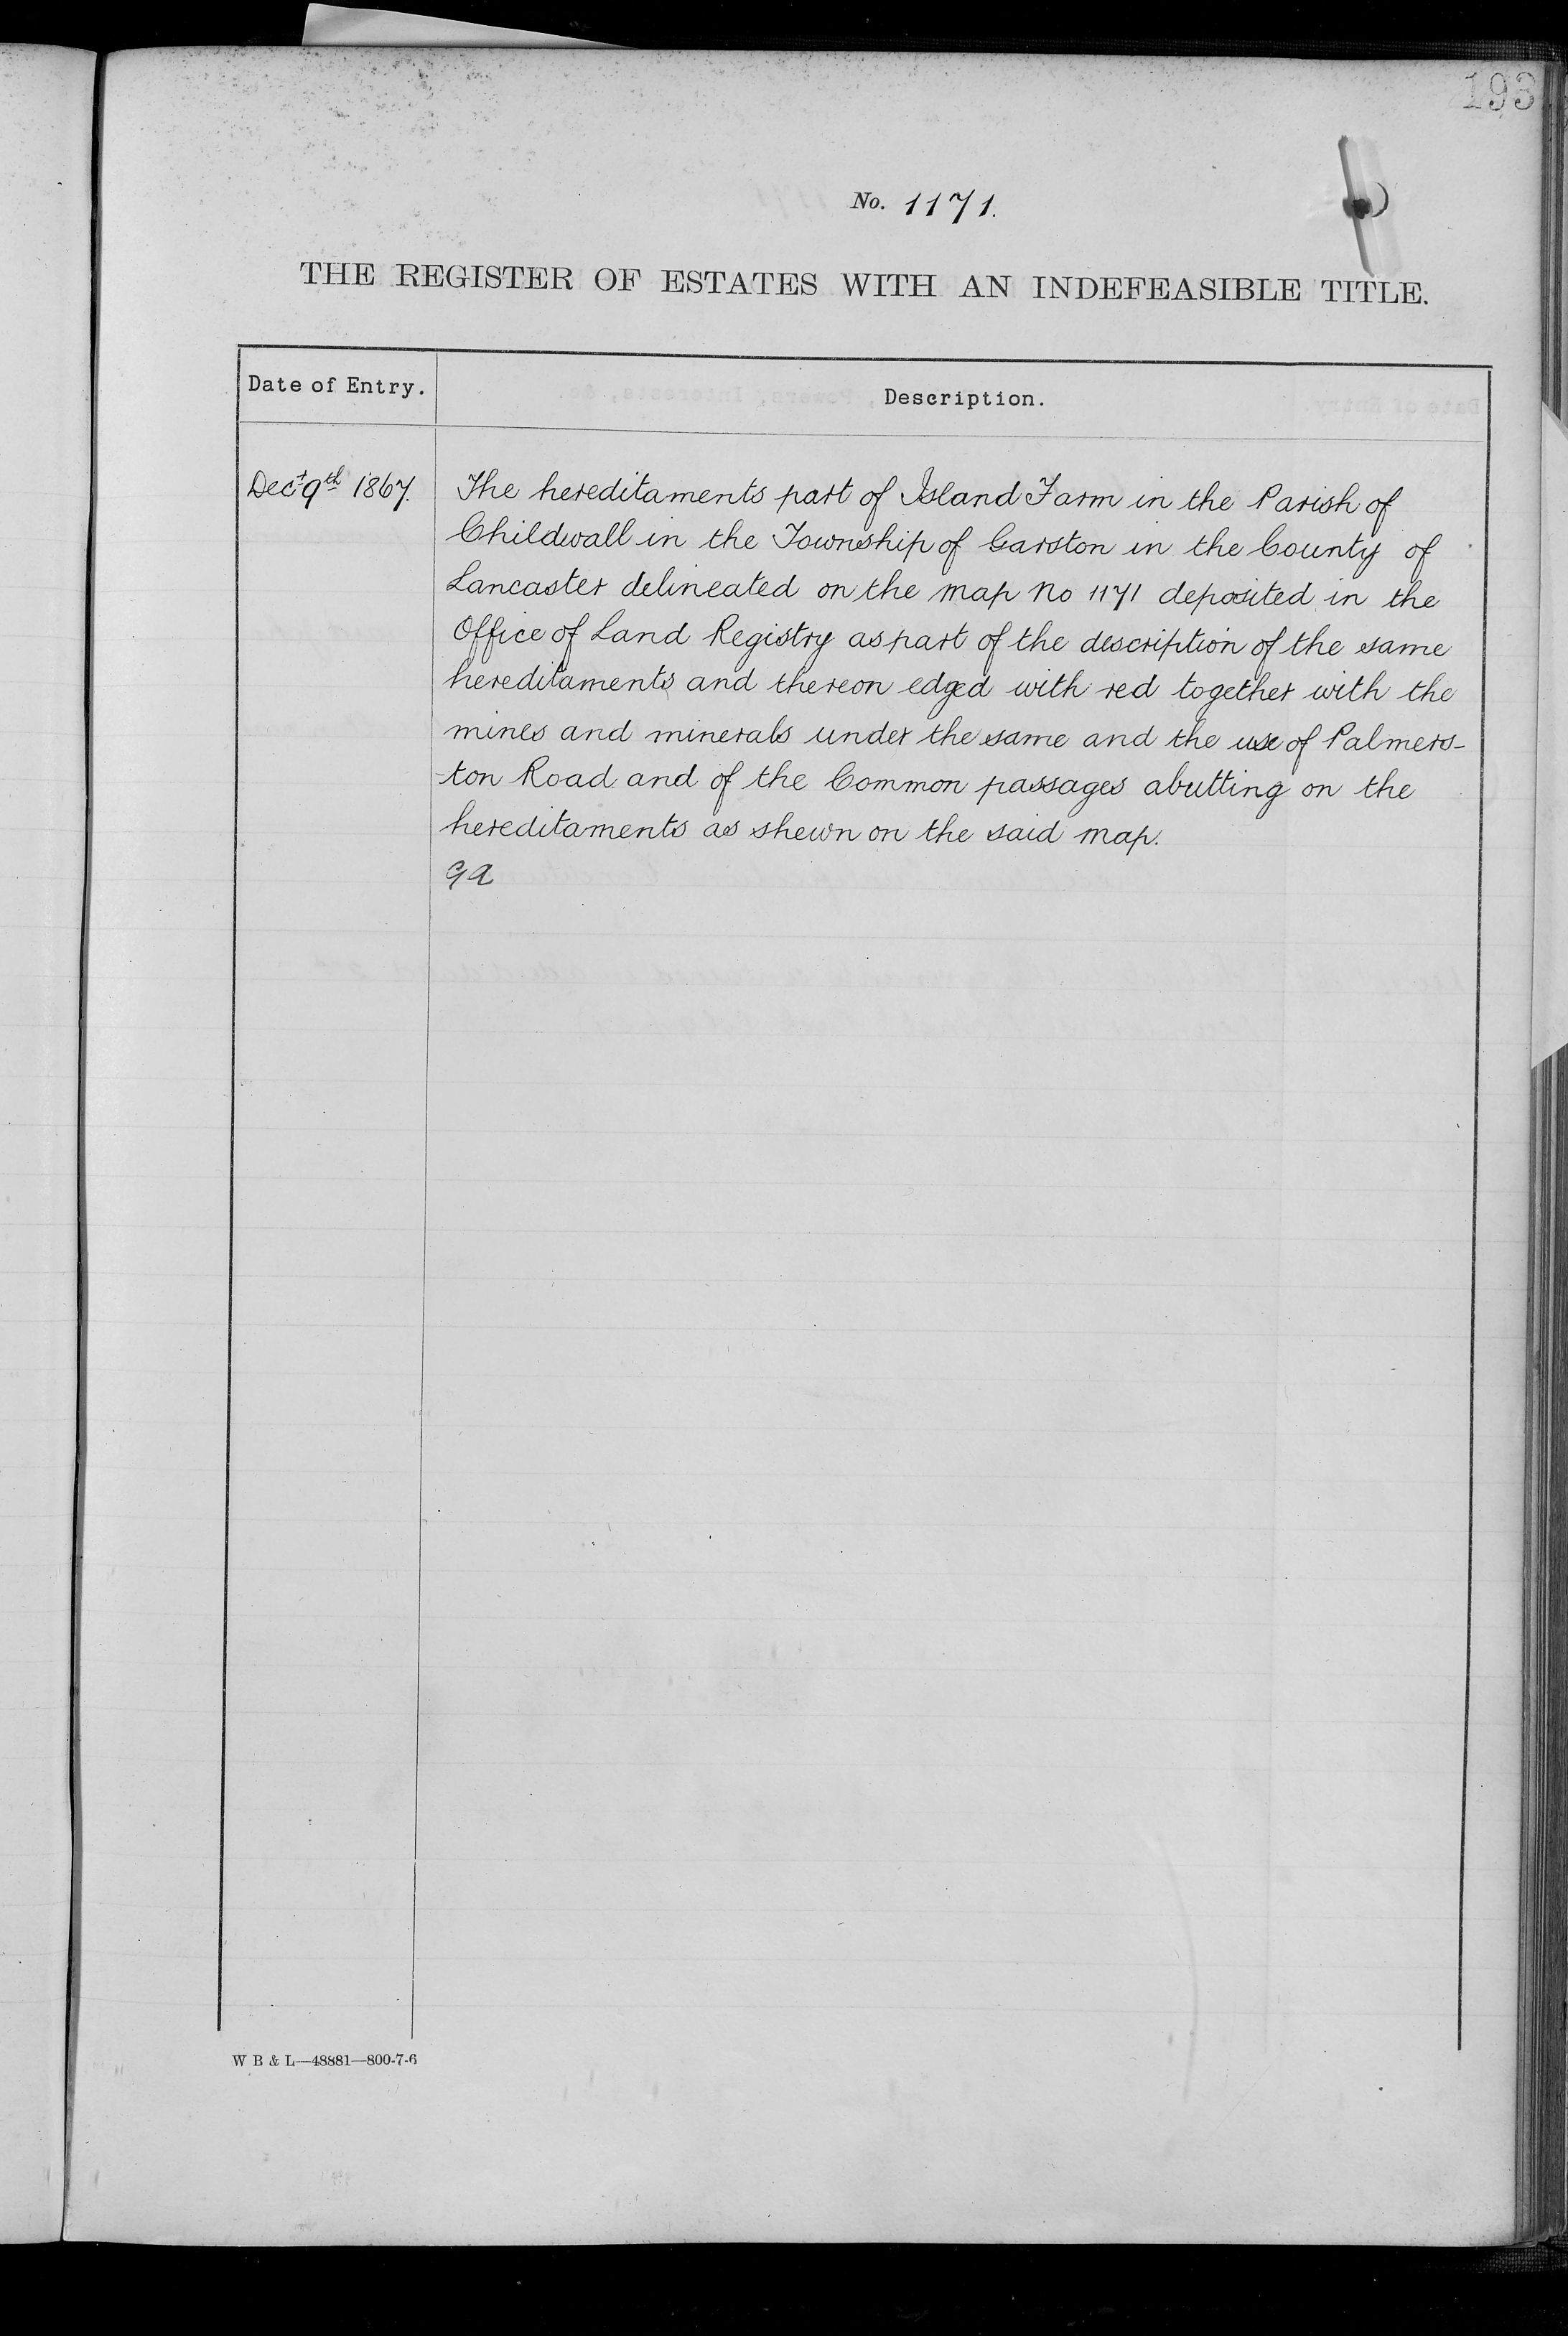 193
No. 1171.
THE REGISTER OF ESTATES WITH AN INDEFEASIBLE TITLE.
Date of Entry.
Description.
Decr 9th 1867.
The hereditaments part of Island Farm in the Parish of
Childwall in the Township of Garston in the County of
Lancaster delineated on the map No 1171 deposited in the
Office of Land Registry as part of the description of the same
hereditaments and thereon edged with red together with the
mines and minerals under the same and the use of Palmers-
-ton Road and of the Common passages abutting on the
hereditaments as shewn on the said map.
GA
W B & L—48881—800-7-6